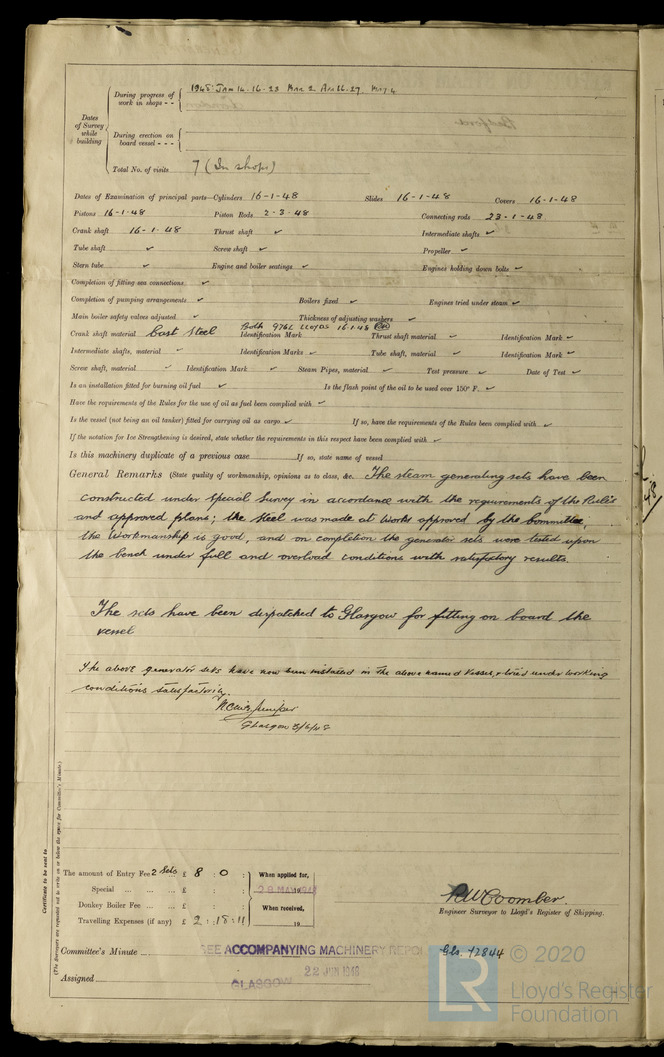 During progress of work in shops - - 1948 Jan 14. 16. 23 Mar 2 Apr 16. 27. May 4
Dates of Survey while building
During erection on board vessel - - -
Total No. of visits 7 (In shops)
Dates of Examination of principal parts—Cylinders 16-1-48 Slides 16-1-48 Covers 16-1-48
Pistons 16-1-48 Piston Rods 2-3-48 Connecting rods 23-1-48
Crank shaft 16-1-48 Thrust shaft ✓ Intermediate shafts ✓
Tube shaft ✓ Screw shaft ✓ Propeller ✓
Stern tube ✓ Engine and boiler seatings ✓ Engines holding down bolts ✓
Completion of fitting sea connections ✓
Completion of pumping arrangements ✓ Boilers fixed ✓ Engines tried under steam ✓
Main boiler safety valves adjusted ✓ Thickness of adjusting washers ✓
Crank shaft material Cast Steel Identification Mark Both 976L LLOYDS 16.1.48 Thrust shaft material ✓ Identification Mark ✓
Intermediate shafts, material ✓ Identification Marks ✓ Tube shaft, material ✓ Identification Mark ✓
Screw shaft, material ✓ Identification Mark ✓ Steam Pipes, material ✓ Test pressure ✓ Date of Test ✓
Is an installation fitted for burning oil fuel ✓ Is the flash point of the oil to be used over 150° F. ✓
Have the requirements of the Rules for the use of oil as fuel been complied with ✓
Is the vessel (not being an oil tanker) fitted for carrying oil as cargo ✓ If so, have the requirements of the Rules been complied with ✓
If the notation for Ice Strengthening is desired, state whether the requirements in this respect have been complied with ✓
Is this machinery duplicate of a previous case If so, state name of vessel
General Remarks (State quality of workmanship, opinions as to class, &c. The steam generating sets have been
constructed under special survey in accordance with the requirements of the Rules
and approved plans; the steel was made at Works approved by the Committee,
the Workmanship is good, and on completion the generator sets were tested upon
the bench under full and overload conditions with satisfactory results.
The sets have been dispatched to Glasgow for fitting on board the
vessel
The above generator sets have now been installed in the above named Vessel, & tried under working
conditions satisfactorily.
Glasgow 3/6/48
Certificate to be sent to
(The Surveyors are requested not to write on or below the space for Committee's Minute.)
The amount of Entry Fee 2 Sets £ 8 : 0 : When applied for,
Special ... ... ... £ : : 28 MAY 1948
Donkey Boiler Fee ... ... £ : : When received,
Travelling Expenses (if any) £ 2 : 18 : 11 19
R W Coomber.
Engineer Surveyor to Lloyd's Register of Shipping.
Committee's Minute SEE ACCOMPANYING MACHINERY REPORT Gls. 12844
22 JUN 1948
Assigned GLASGOW
LR © 2020
Lloyd's Register
Foundation